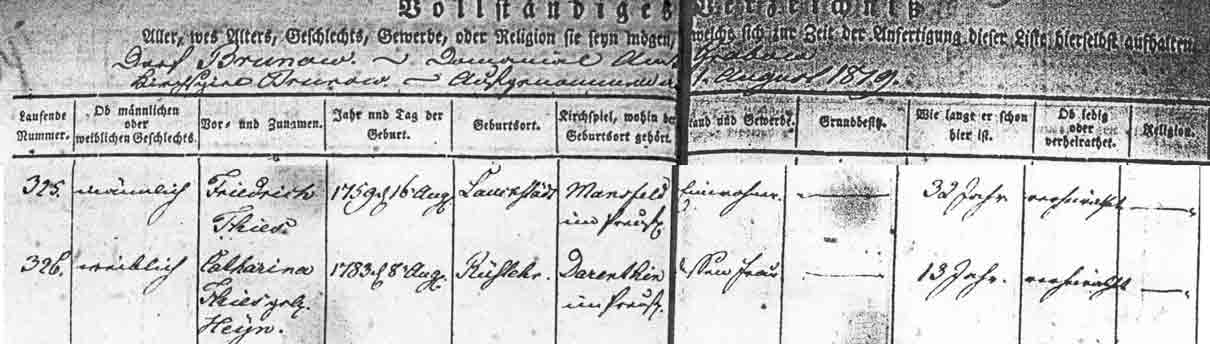 Vollständiges Verzeichniß
Aller, wes Alters, Geschlechts, Gewerbe, oder Religion sie seyn mögen, welche sich zur Zeit der Anfertigung dieser Liste hierselbst aufhalten.
Dorf Brunow. Domanial Amt Grabow
Kirchspiel Brunow. Aufgenommen d 1. August 1819.
Laufende Nummer. Ob männlichen oder weiblichen Geschlechts. Vor- und Zunamen. Jahr und Tag der Geburt. Geburtsort. Kirchspiel, wohin der Geburtsort gehört. Stand und Gewerbe. Grundbesitz. Wie lange er schon hier ist. Ob ledig oder verheirathet. Religion.
325. männlich Friedrich 1759 d 16 Aug Mansfeld Einwohner. 32 Jahr verheirathet
Thies. im Preuß.
326. weiblich Catharina 1783 d 8 Aug. Darenthin deßen Frau 13 Jahr. verheirathet
Thies geb. im Preuß.
Heyn.